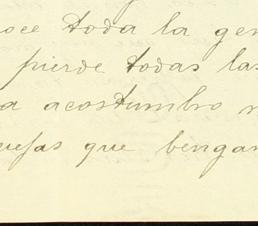 oce toda la gen
pierde todas las
a acostumbro n
uejas que bengan